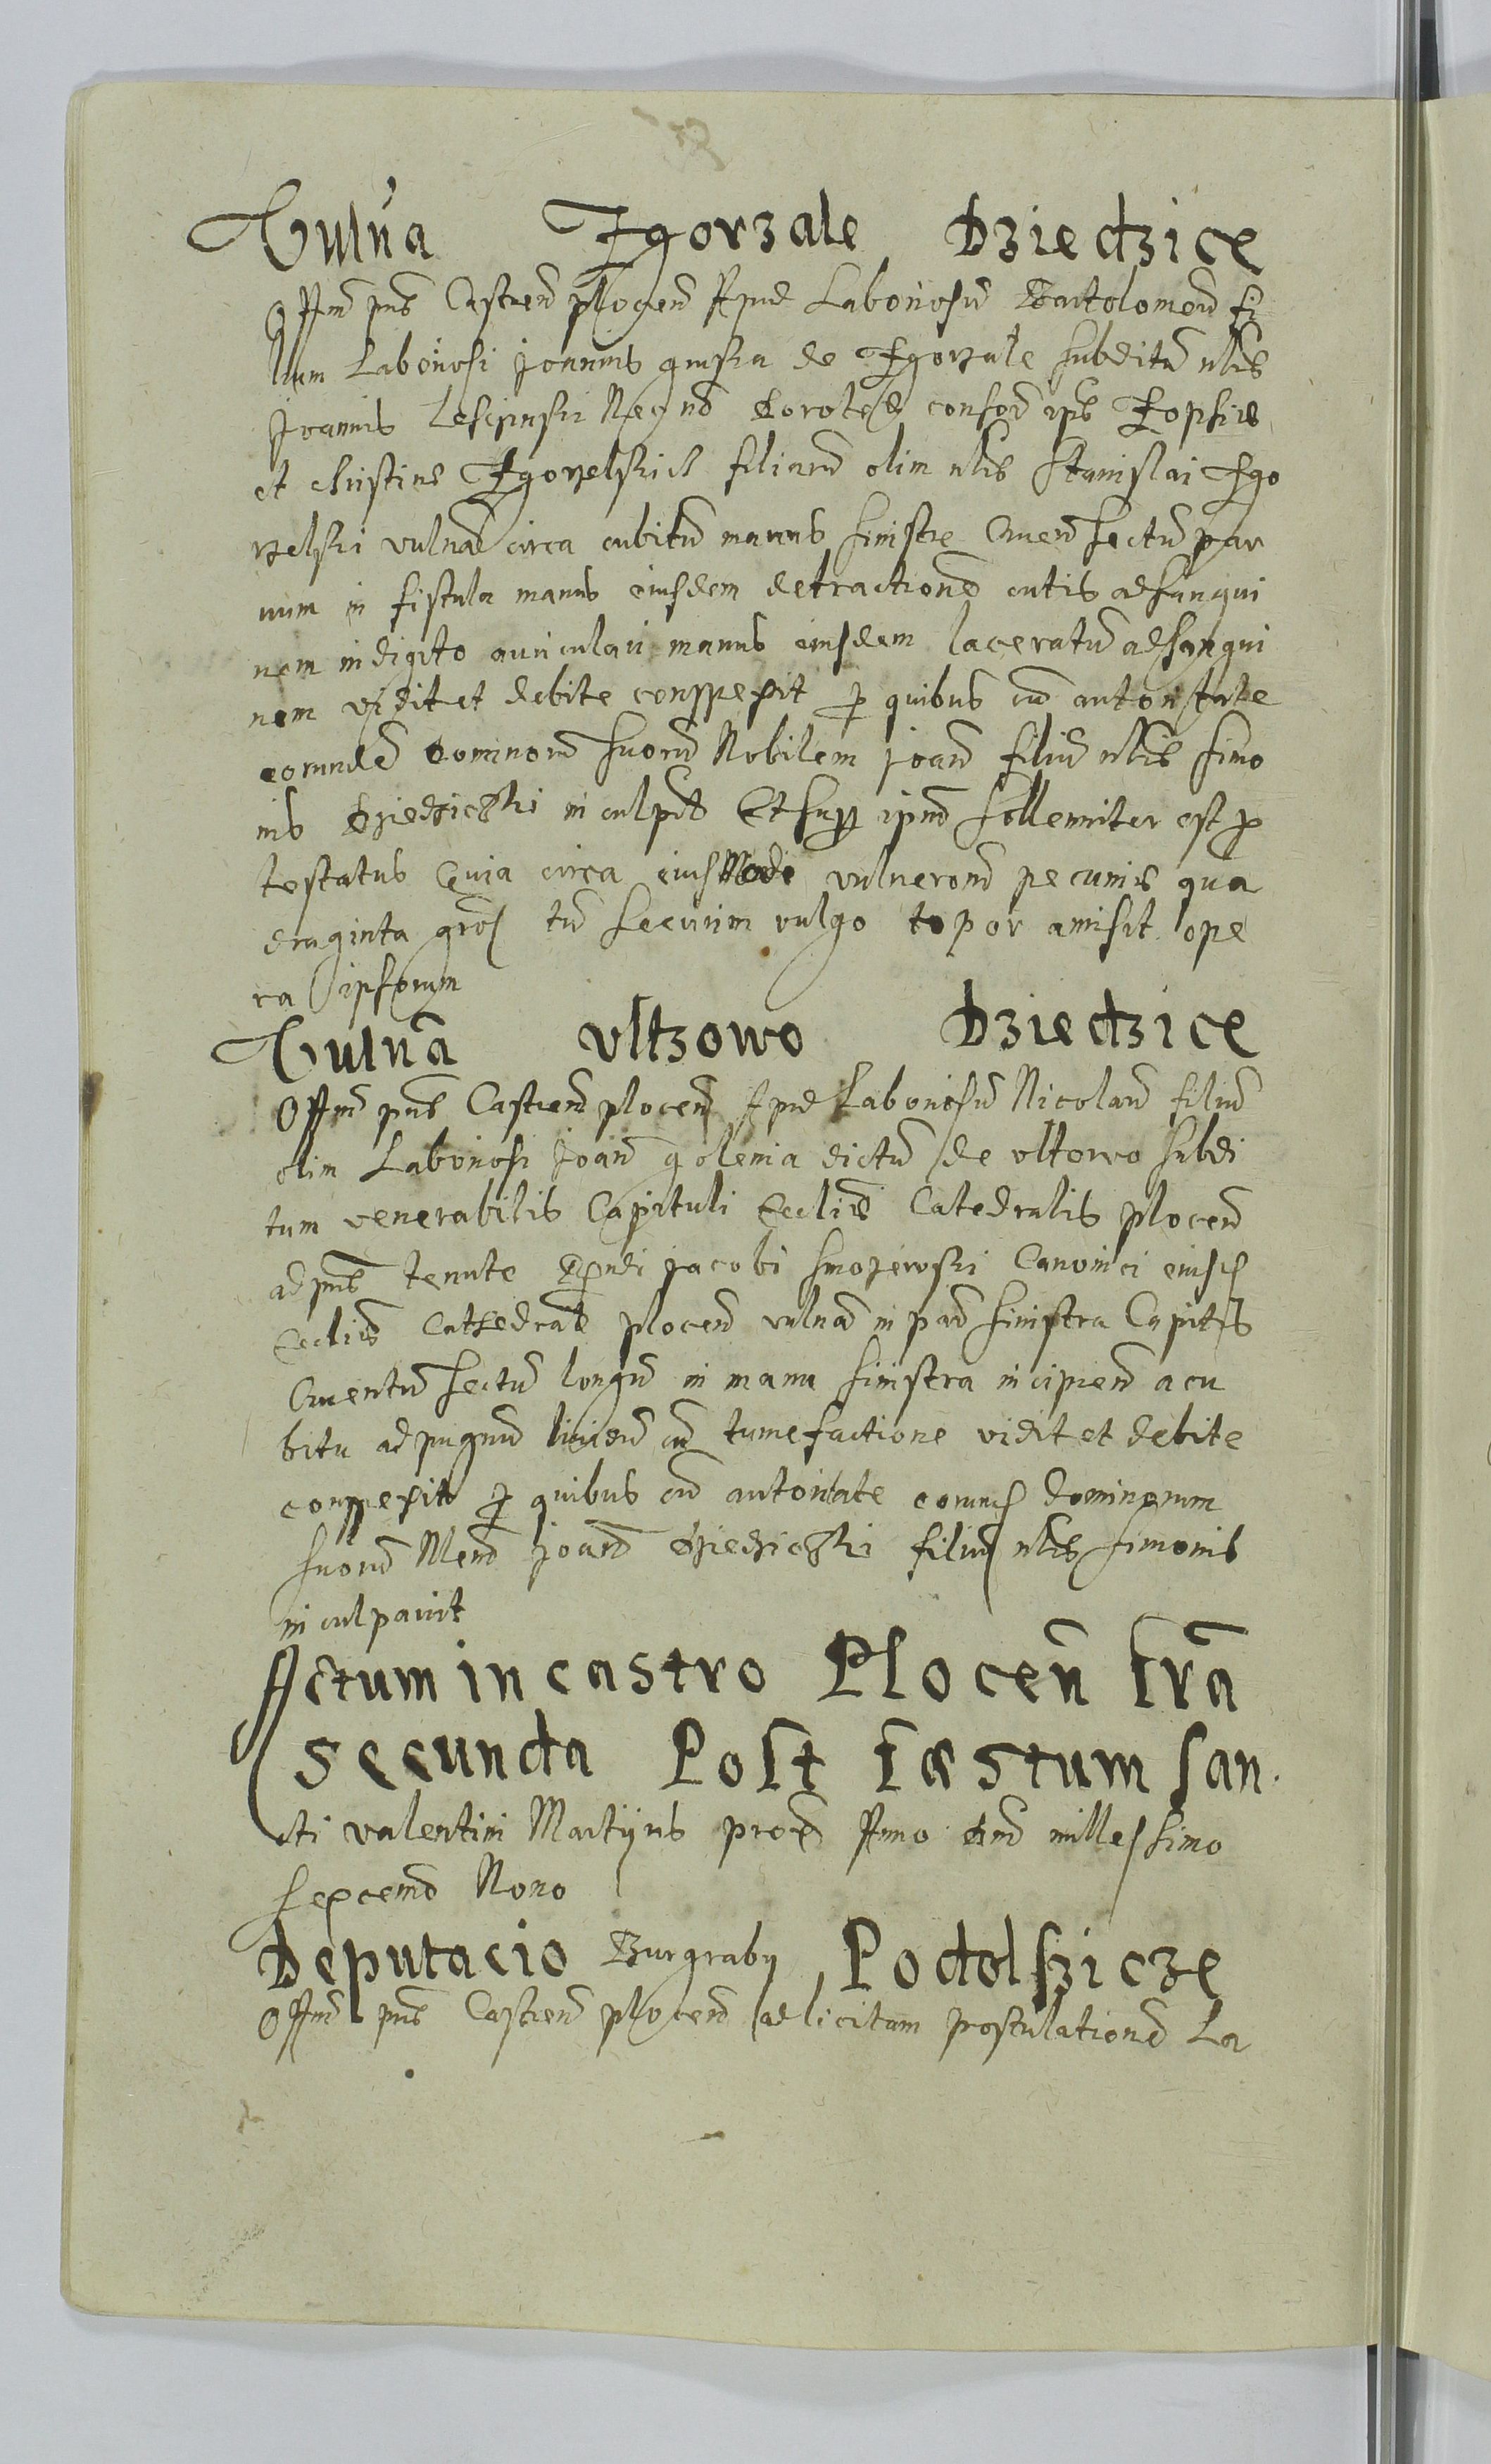 Vulna Zgorzale Dziedzice
Offm pns Castren plocen Apud Laboriosu Bartolomeu fi
lium Laboriosi Joannis de Zgorzale subditu nlis
Joannis Necno Dorotee consor Zophie
et christine Zgorzelskich filiaru olim nlis Stanislai Zgo
rzelski vulna circa cubitu manus sinistre Cruen sectu par
uum in fistula manus eiusdem detractione cutis ad sangui
nem in digito auriculari manus eiusdem laceratu ad sangui
nem vidit et debite conspexit p quibus cu autoritate
eorunde Dominoru suoru Nobilem Joan filiu nlis Simo
nis Dziedziczki inculpat Et supr ipm sollemniter est p
testatus Quia circa eiusmodi vulneron pecunie qua
draginta gros tu securim vulgo topor amisit ope
ra ipsorum
Vulna Vltzowo Dziedzice
Offm pns Castren plocen Apud Laboriosu Nicolau filiu
olim Laboriosi Joan golenia dictu de vltowo subdi
tum venerabilis Capituli Ecclie Catedralis plocen
ad pns tenute Rndi Jacobi Canonici eiusd
Ecclie Cathedral plocen vulna in par sinistra Capitis
Cruentu sectu longu in manu sinistra incipien a cu
bitu ad pugnu liuidu cu tumefactione vidit et debite
conspexit p quibus cu autoritate eorund dominorum
suoru Nlem Joane Dziedziczki filiu nlis Simonis
inculpauit
Actum in castro Plocen fra
secunda Post faestum san
cti valentini Martyris prox Anno dni millessimo
sexcenmo Nono
Deputacio Burgraby Podolszicze
Offm pns Castren plocen ad licitam postulatione La